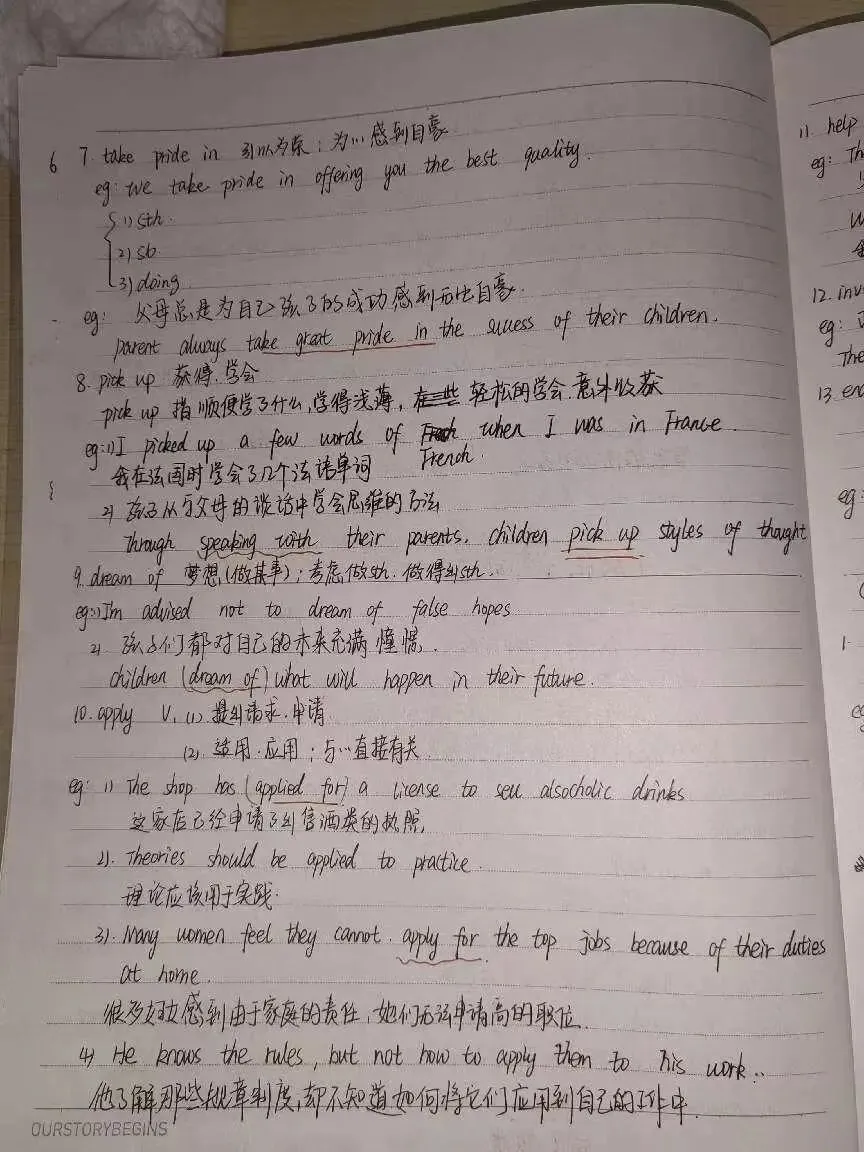 6 7. take pride in 引以为荣；为…感到自豪
eg: we take pride in offering you the best quality.
1) sth.
2) sb
3) doing
eg: 父母总是为自己孩子的成功感到无比自豪.
parent always take great pride in the success of their children.
8. pick up 获得.学会
pick up 指顺便学了什么,学得浅薄, 轻松的学会.意外收获
eg: 1) I picked up a few words of French when I was in France.
我在法国时学会了几个法语单词
2) 孩子从与父母的谈话中学会思维的方法
Through speaking with their parents, children pick up styles of thought
9. dream of 梦想(做某事)；考虑做sth. 做得到sth.
eg: 1) I'm advised not to dream of false hopes
2) 孩子们都对自己的未来充满憧憬.
children (dream of) what will happen in their future.
10. apply v. (1) 提出请求.申请
(2). 适用.应用；与…直接有关
eg: 1) The shop has (applied for) a license to sell alsocholic drinks
这家店已经申请了出售酒类的执照.
2). Theories should be applied to practice.
理论应该用于实践.
3). Many women feel they cannot apply for the top jobs because of their duties
at home.
很多妇女感到由于家庭的责任,她们无法申请高的职位.
4) He knows the rules, but not how to apply them to his work..
他了解那些规章制度,却不知道如何将它们应用到自己的工作中.
OURSTORYBEGINS
11. help
eg: Th
12. inv
eg: J
The
13. en
eg:
1.